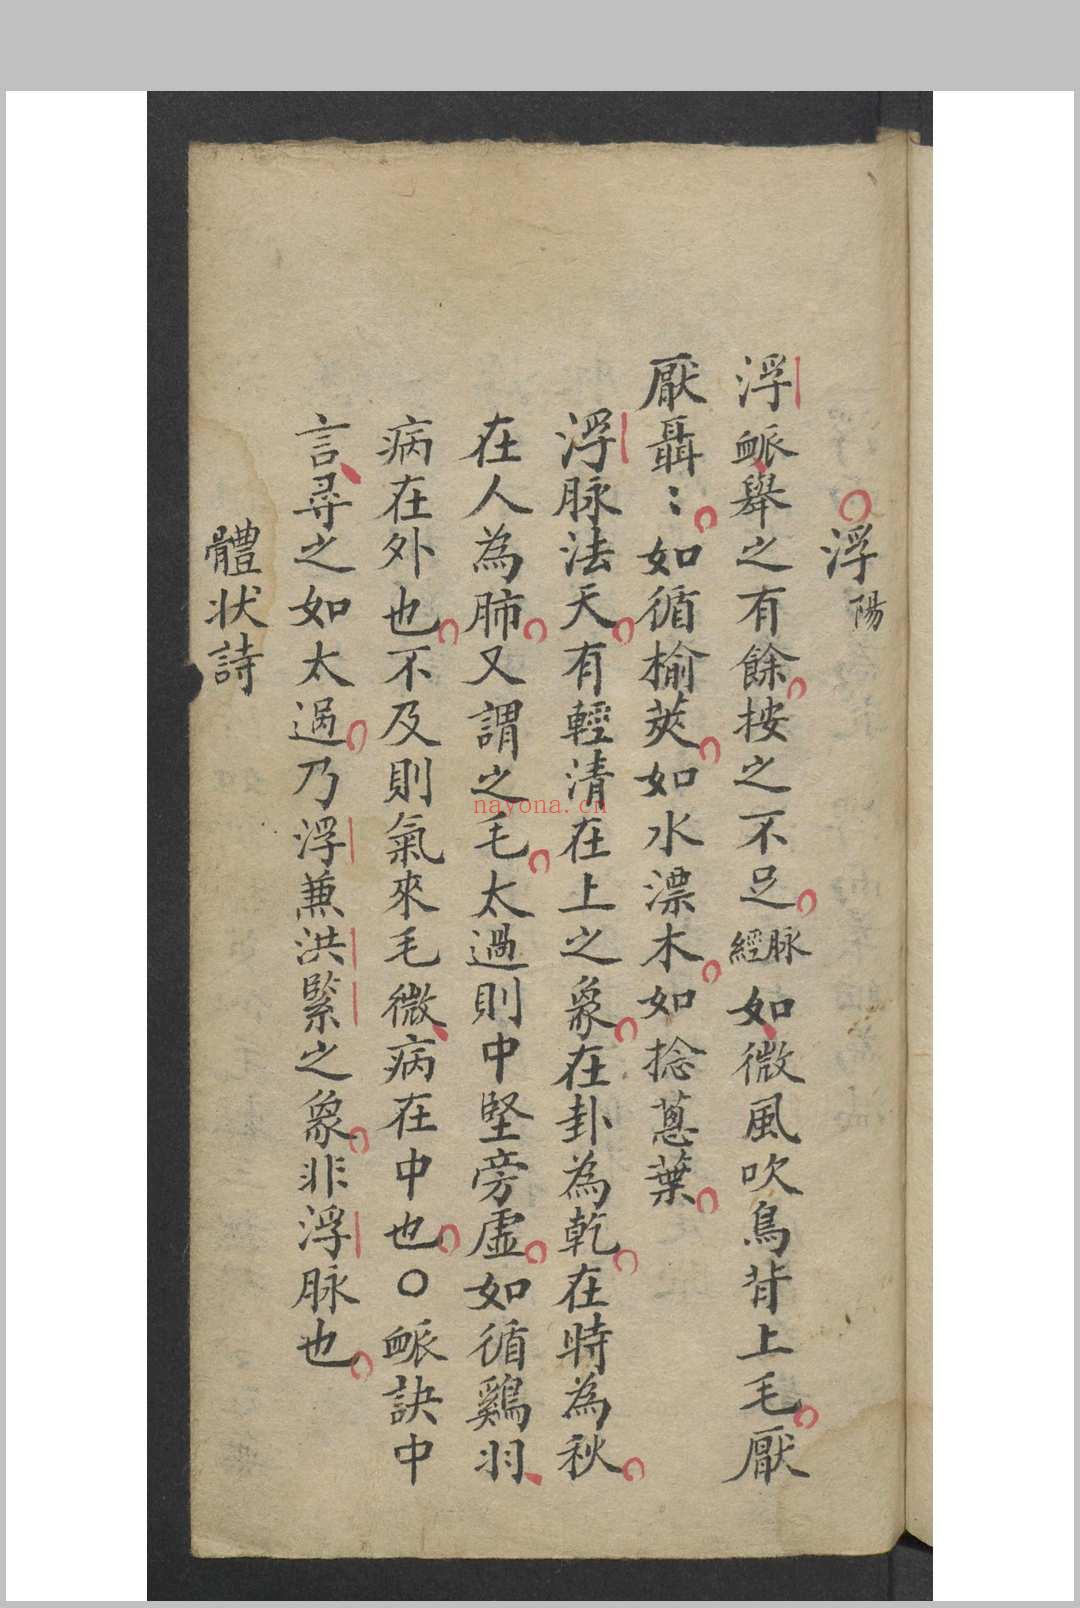 浮陽
浮衇舉之有餘按之不足脉經如微風吹鳥背上毛厭
厭聶:如循榆莢如水漂木如捻蔥葉
浮脉法天有輕清在上之象在卦為乾在時為秋
在人為肺又謂之毛太過則中堅旁虛如循鷄羽
病在外也不及則氣來毛微病在中也○衇訣中
言尋之如太過乃浮兼洪緊之象非浮脉也
體状詩
nayona.cn